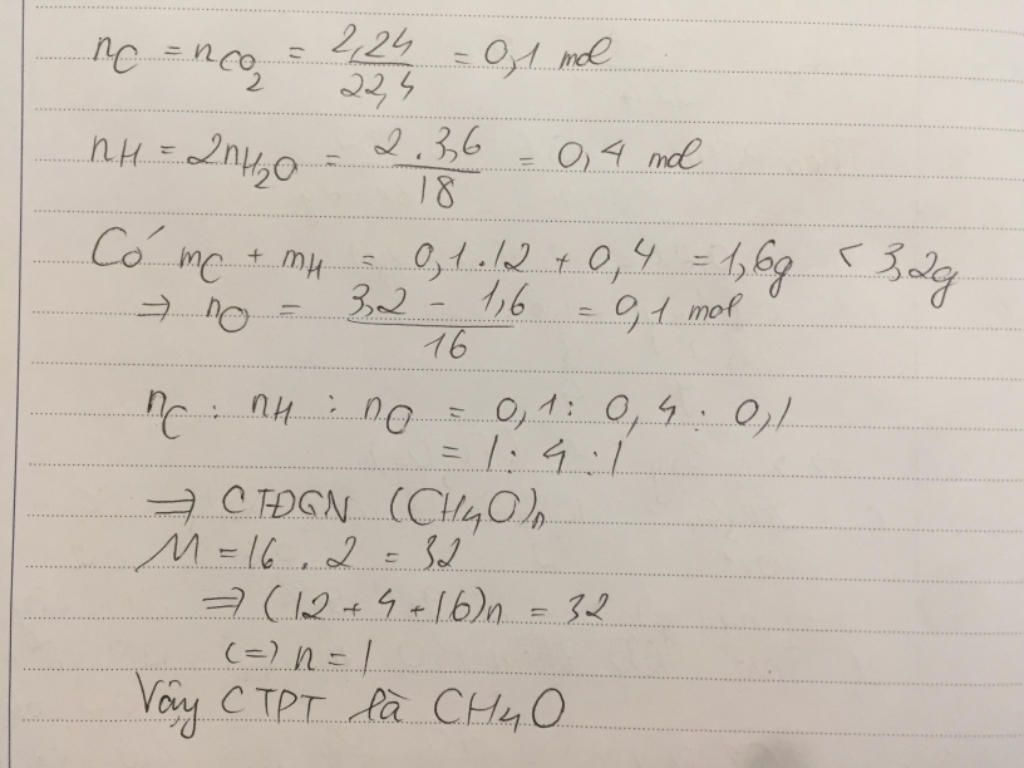 nC = nCO2 = 2,24/22,4 = 0,1 mol
nH = 2nH2O = 2.3,6/18 = 0,4 mol
Có mC + mH = 0,1.12 + 0,4 = 1,6g < 3,2g
=> nO = 3,2 - 1,6/16 = 0,1 mol
nC : nH : nO = 0,1 : 0,4 : 0,1
= 1 : 4 : 1
=> CTĐGN (CH4O)n
M = 16 . 2 = 32
=> (12 + 4 + 16)n = 32
(=) n = 1
Vậy CTPT là CH4O